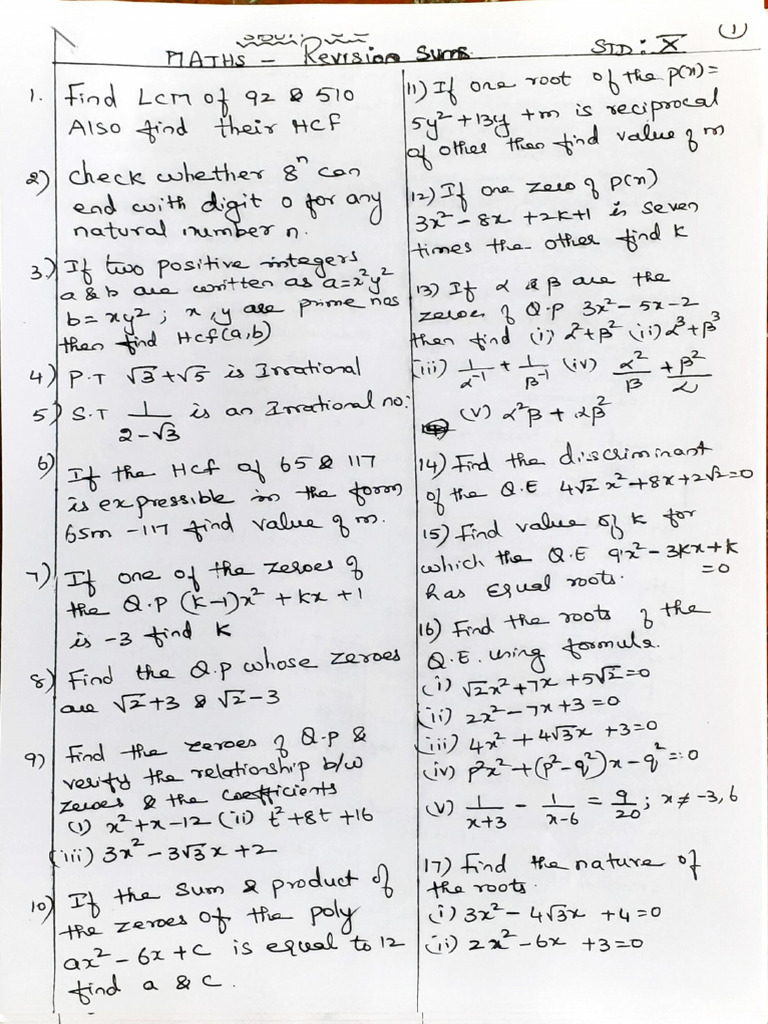 1
MATHS - Revision Sums. STD: X
1. Find LCM of 92 & 510
Also find their HCF
2) check whether 8ⁿ can
end with digit 0 for any
natural number n.
3.) If two positive integers
a & b are written as a=x²y²
b=xy²; x,y are prime nos
then find Hcf(a,b)
4) P.T √3+√5 is Irrational
5) S.T 1/(2-√3) is an Irrational no:
6) If the Hcf of 65 & 117
is expressible in the form
65m -117 find value of m.
7) If one of the zeroes of
the Q.P (k-1)x² + kx + 1
is -3 find k
8) Find the Q.p whose zeroes
are √2+3 & √2-3
9) Find the zeroes of Q.p &
verify the relationship b/w
zeroes & the coefficients
(i) x²+x-12 (ii) t²+8t+16
(iii) 3x²-3√3x+2
10) If the sum & product of
the zeroes of the poly
ax²-6x+c is equal to 12
find a & c.
11) If one root of the p(x)=
5y²+13y+m is reciprocal
of other then find value of m
12) If one zero of p(x)
3x²-8x+2k+1 is seven
times the other find k
13) If α & β are the
zeroes of Q.P 3x²-5x-2
then find (i) α²+β² (ii) α³+β³
(iii) 1/α⁻¹ + 1/β⁻¹ (iv) α²/β + β²/α
(v) α²β + αβ²
14) Find the discriminant
of the Q.E 4√2x²+8x+2√2=0
15) Find value of k for
which the Q.E 9x²-3kx+k
=0
has equal roots.
16) Find the roots of the
Q.E. using formula.
(i) √2x²+7x+5√2=0
(ii) 2x²-7x+3=0
(iii) 4x²+4√3x+3=0
(iv) p²x²+(p²-q²)x-q²=0
(v) 1/(x+3) - 1/(x-6) = 9/20; x≠-3,6
17) Find the nature of
the roots.
(i) 3x²-4√3x+4=0
(ii) 2x²-6x+3=0